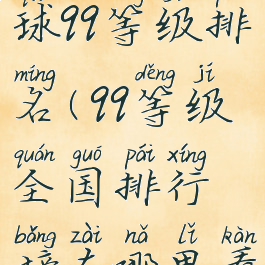 球99等级排
míng děng jí
名(99等级
quán guó pái xíng
全国排行
bǎng zài nǎ lǐ kàn
榜在哪里看